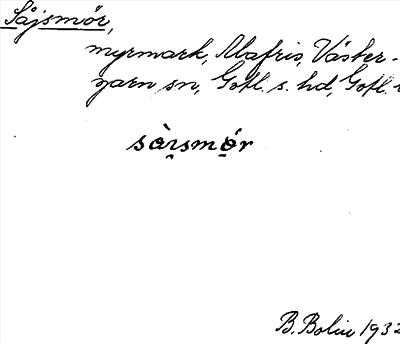 Såjsmör,
myrmark, Mafris, Väster-
garn sn, Gotl. s. hd, Gotl. l
sàɪsmǿr
B. Bolin 1932